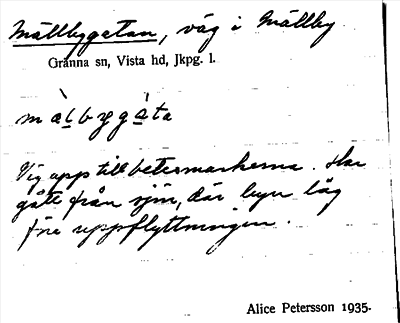 Mällbygatan, väg i Mällby
Gränna sn, Vista hd, Jkpg. l.
Väg upp till betesmarkerna. Har
gått från sjön, där byn låg
före uppflyttningen.
Alice Petersson 1935.